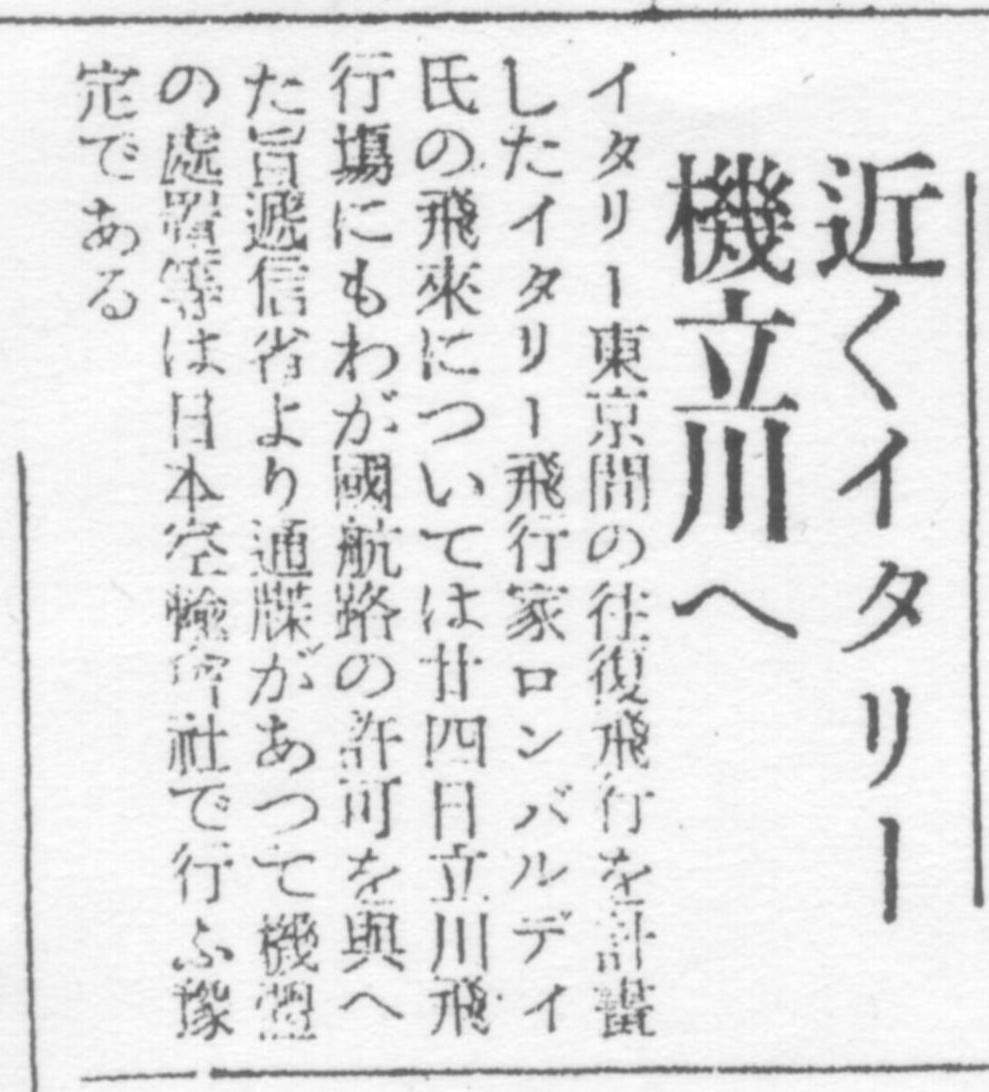 近くイタリー
機立川へ
イタリー東京間の往復飛行を計畫
したイタリー飛行家ロンバルディ
氏の飛來については廿四日立川飛
行場にもわが國航路の許可を與へ
た旨遞信省より通牒があつて機體
の處置等は日本空輸會社で行ふ豫
定である